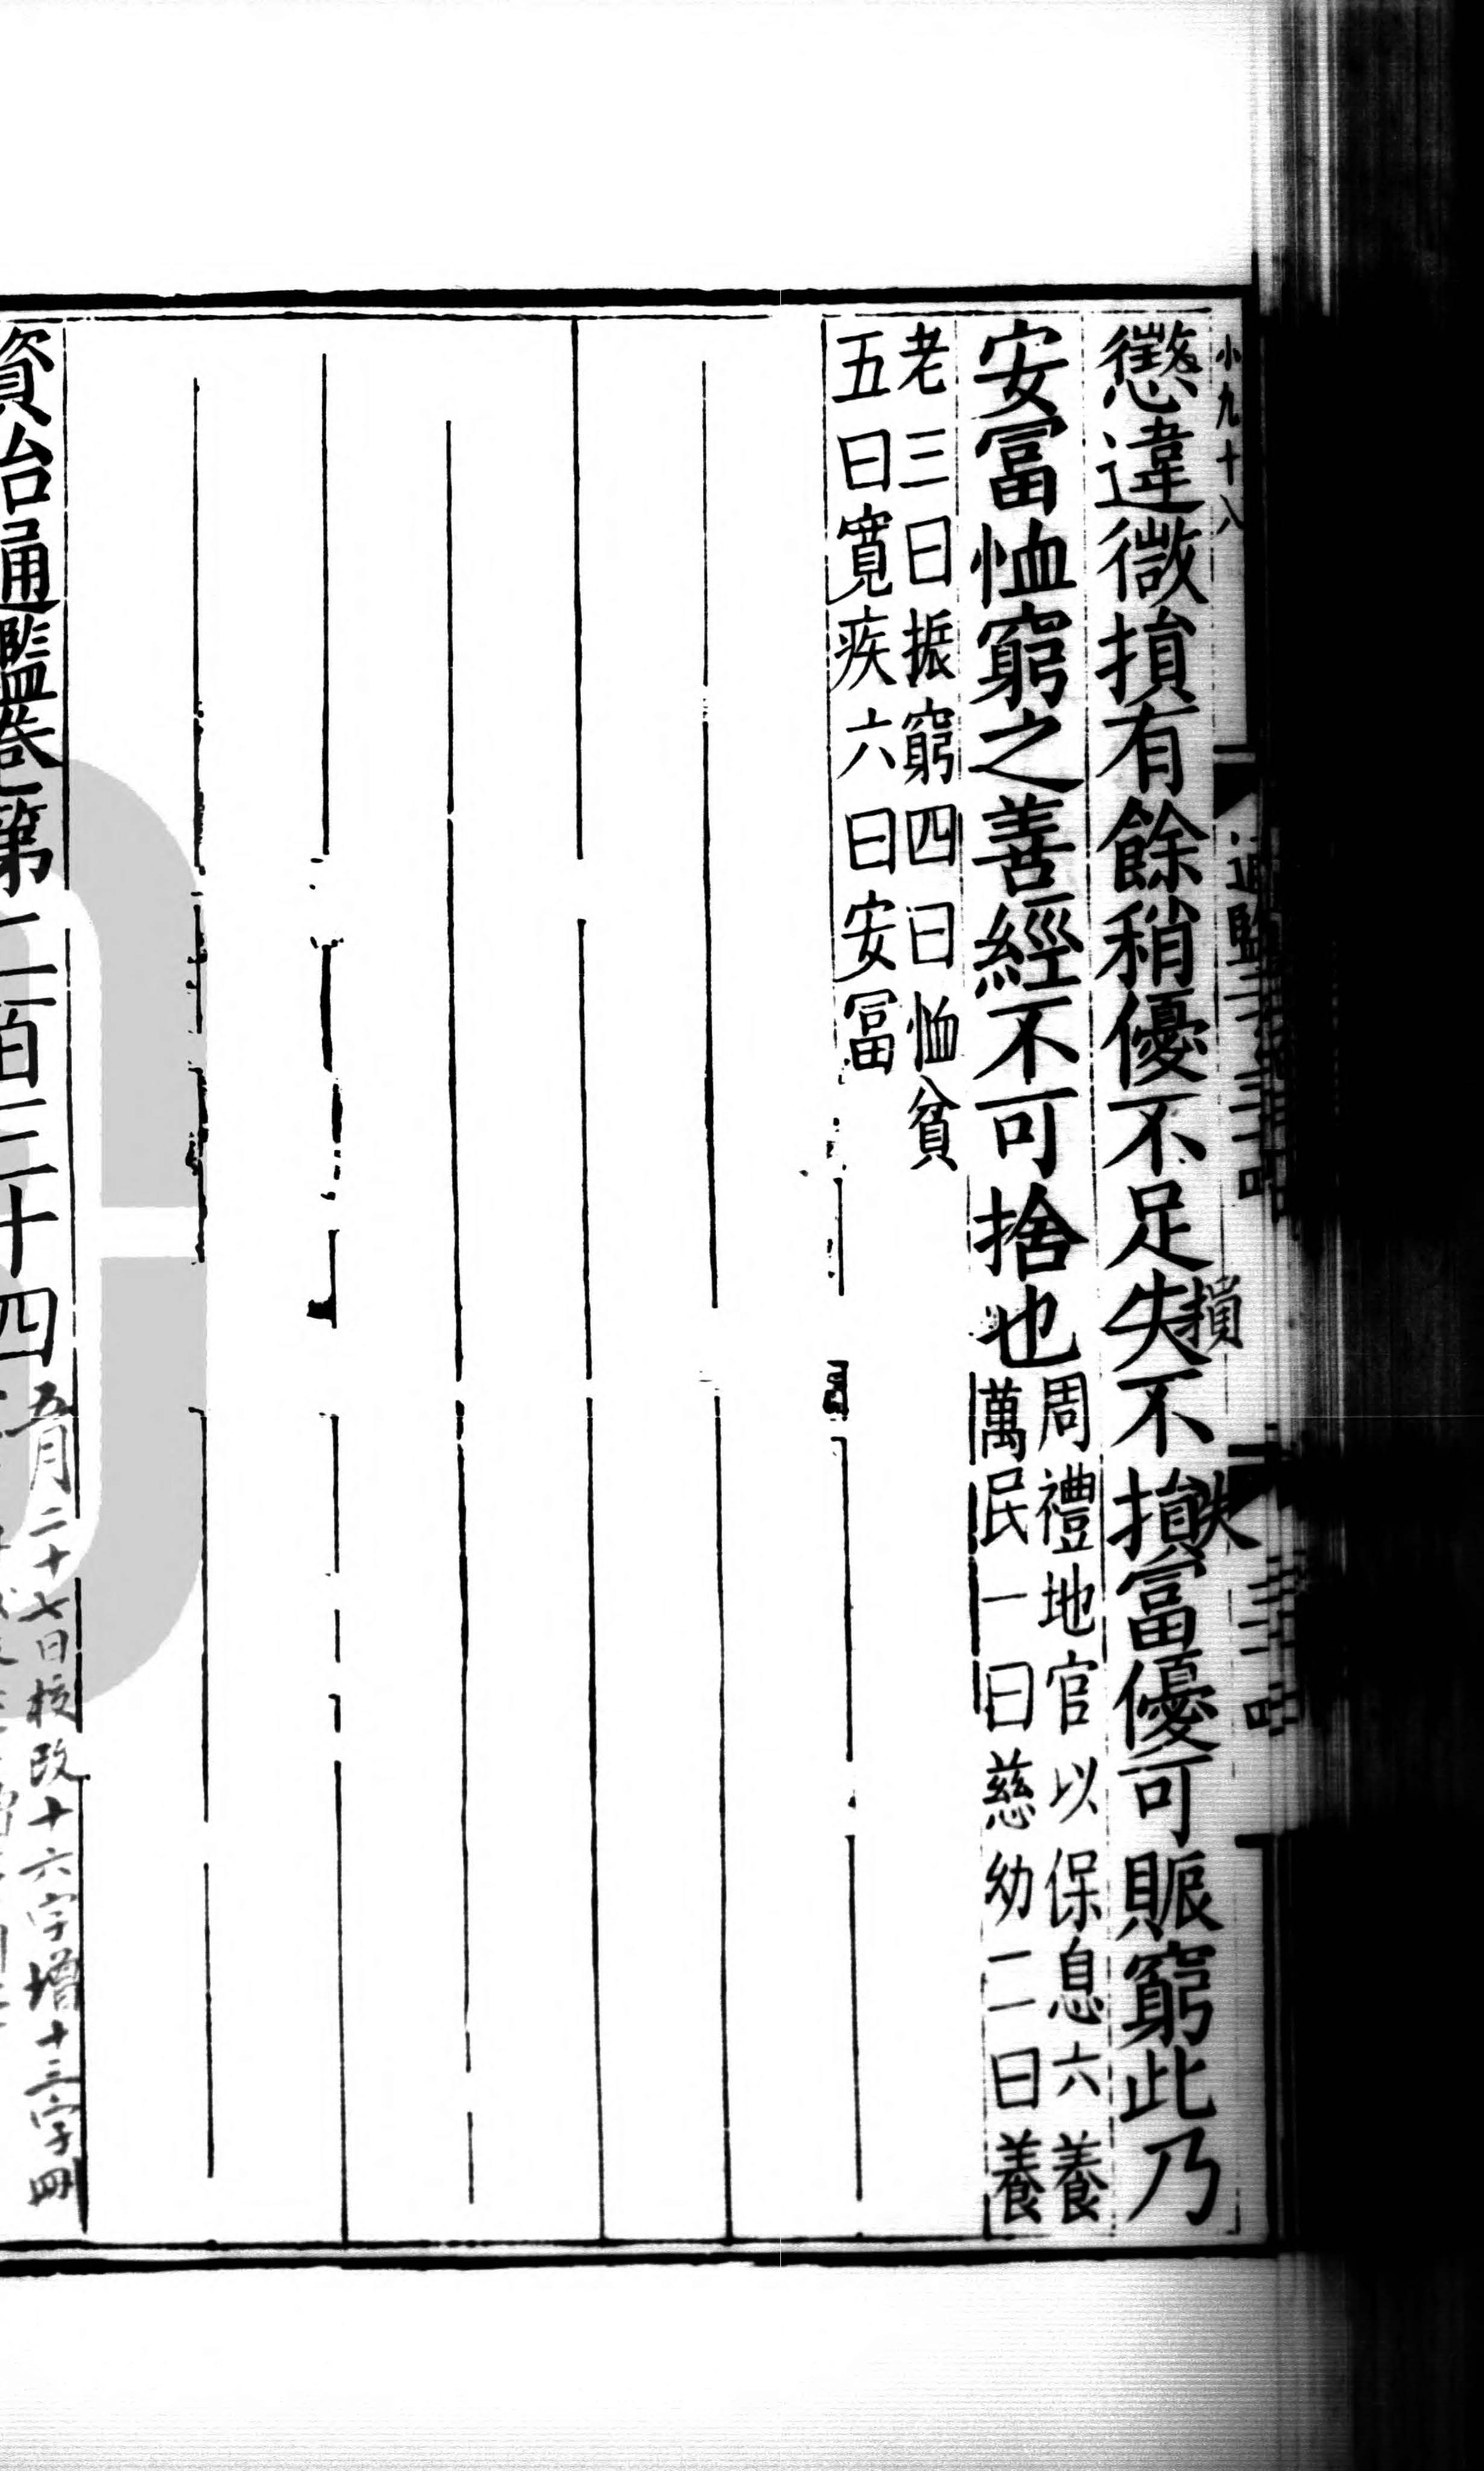 小九十八
通鑑二百三十四
懲違微損有餘稍優不足失不損富優可賑窮此乃
損
失
安富恤窮之善經不可捨也
周禮地官以保息六養
萬民一曰慈幼二曰養
老三曰振窮四曰恤貧
五曰寬疾六曰安富
資治通鑑卷第二百三十四
五月二十七日校改十六字增十三字刪